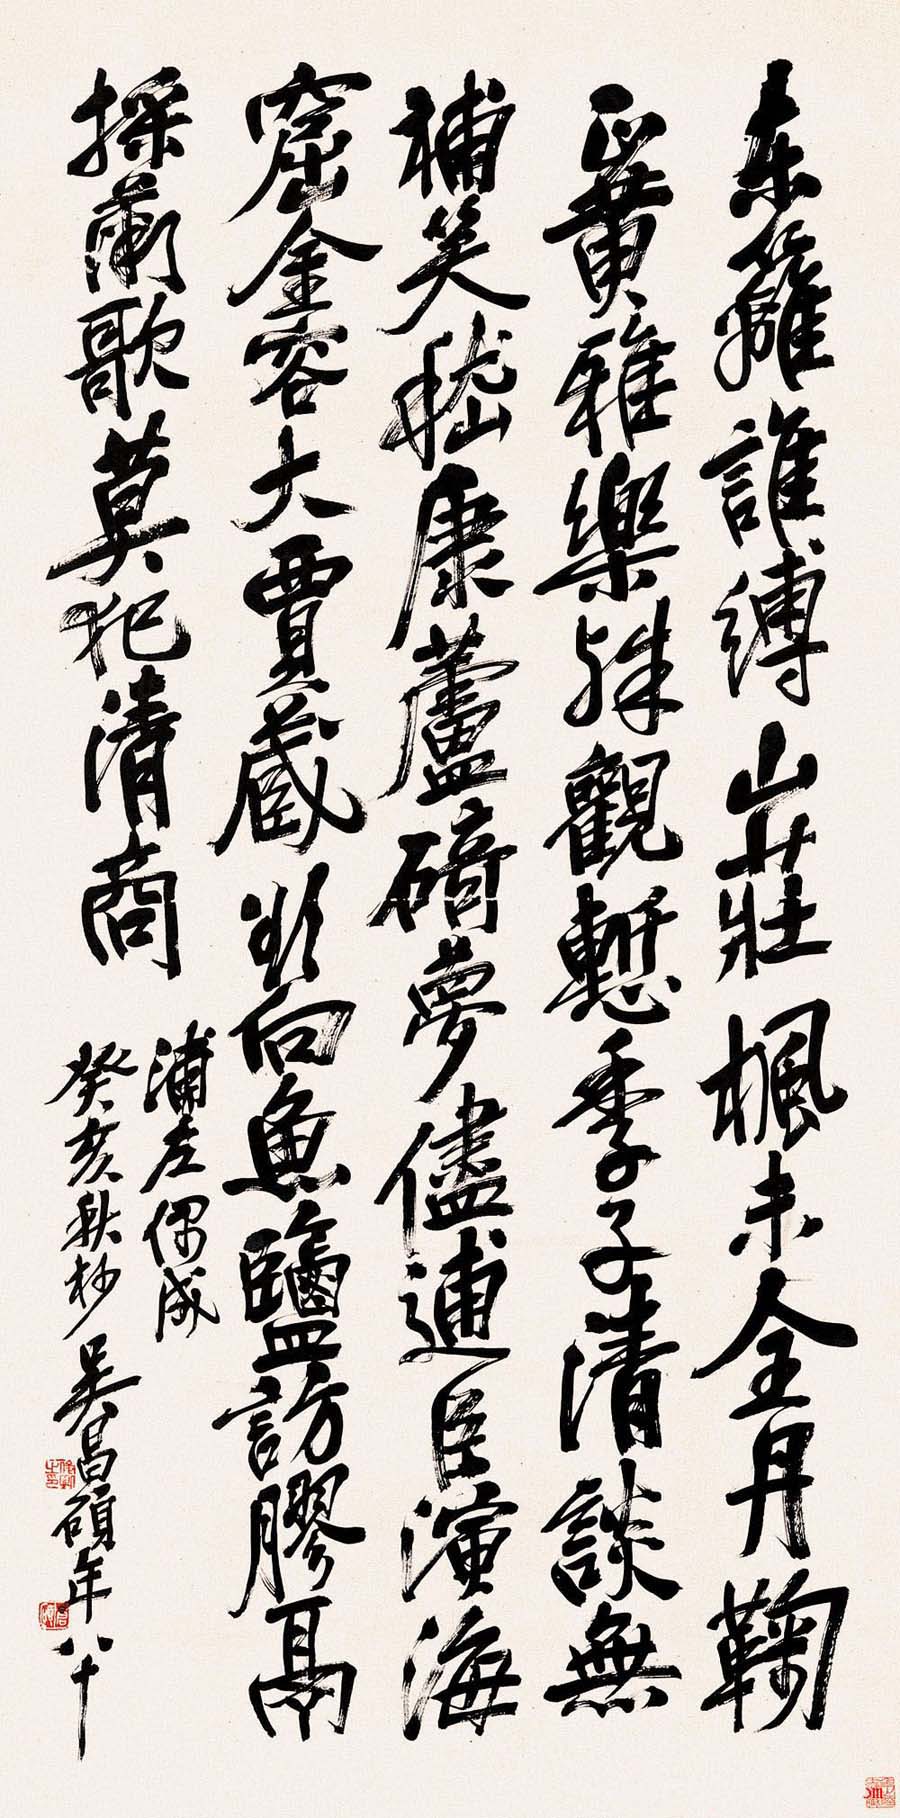 東籬誰縛山莊楓未全丹鞠
正黃雅樂殊觀慙季子清談無
補笑嵇康蘆碕夢儘逋臣演海
窟金容大賈藏欲向魚鹽訪膠鬲
採薇歌莫犯清商
浦左偶成
癸亥秋杪吳昌碩年八十